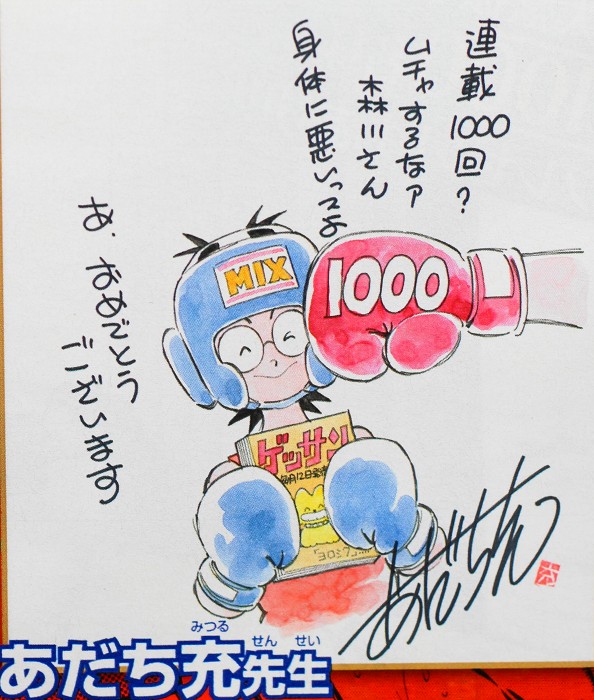 連載1000回?
ムチャするなァ
森川さん
身体に悪いってよ
あ、おめでとう
ございます
MIX
1000
ゲッサン
毎月12日発売
ヨロシク
あだち充
みつる
せんせい
あだち充先生